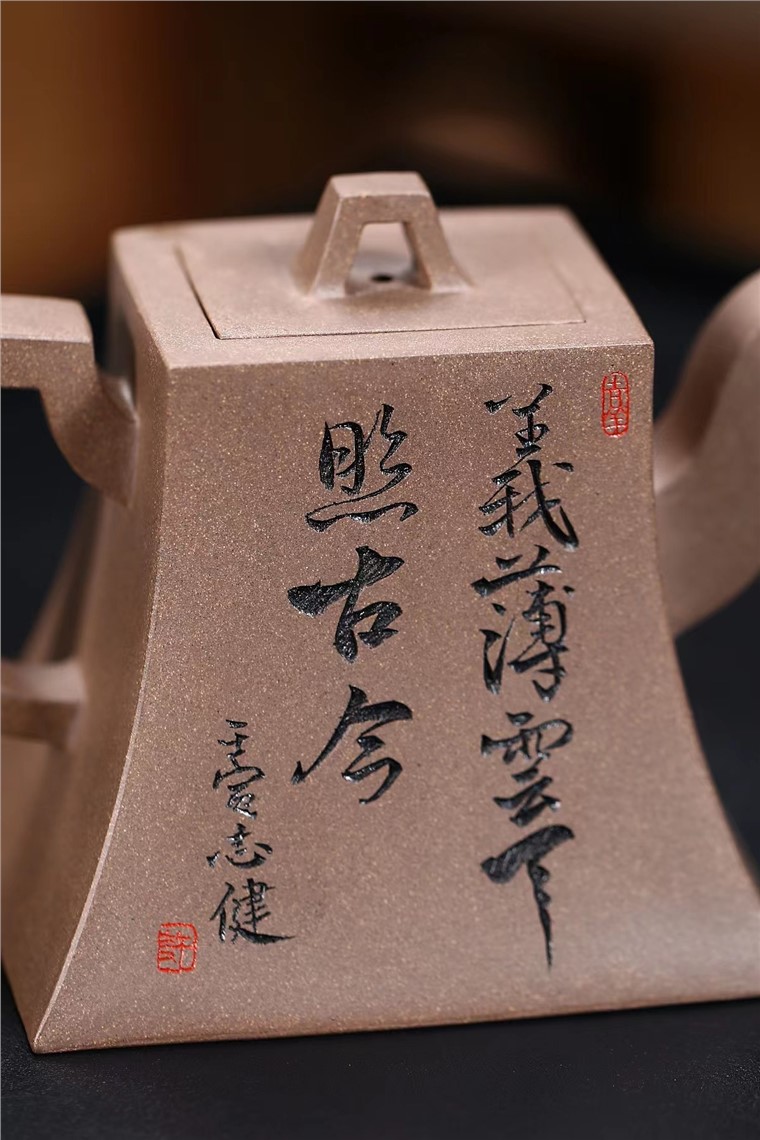 義薄雲天
照古今
壬寅志健